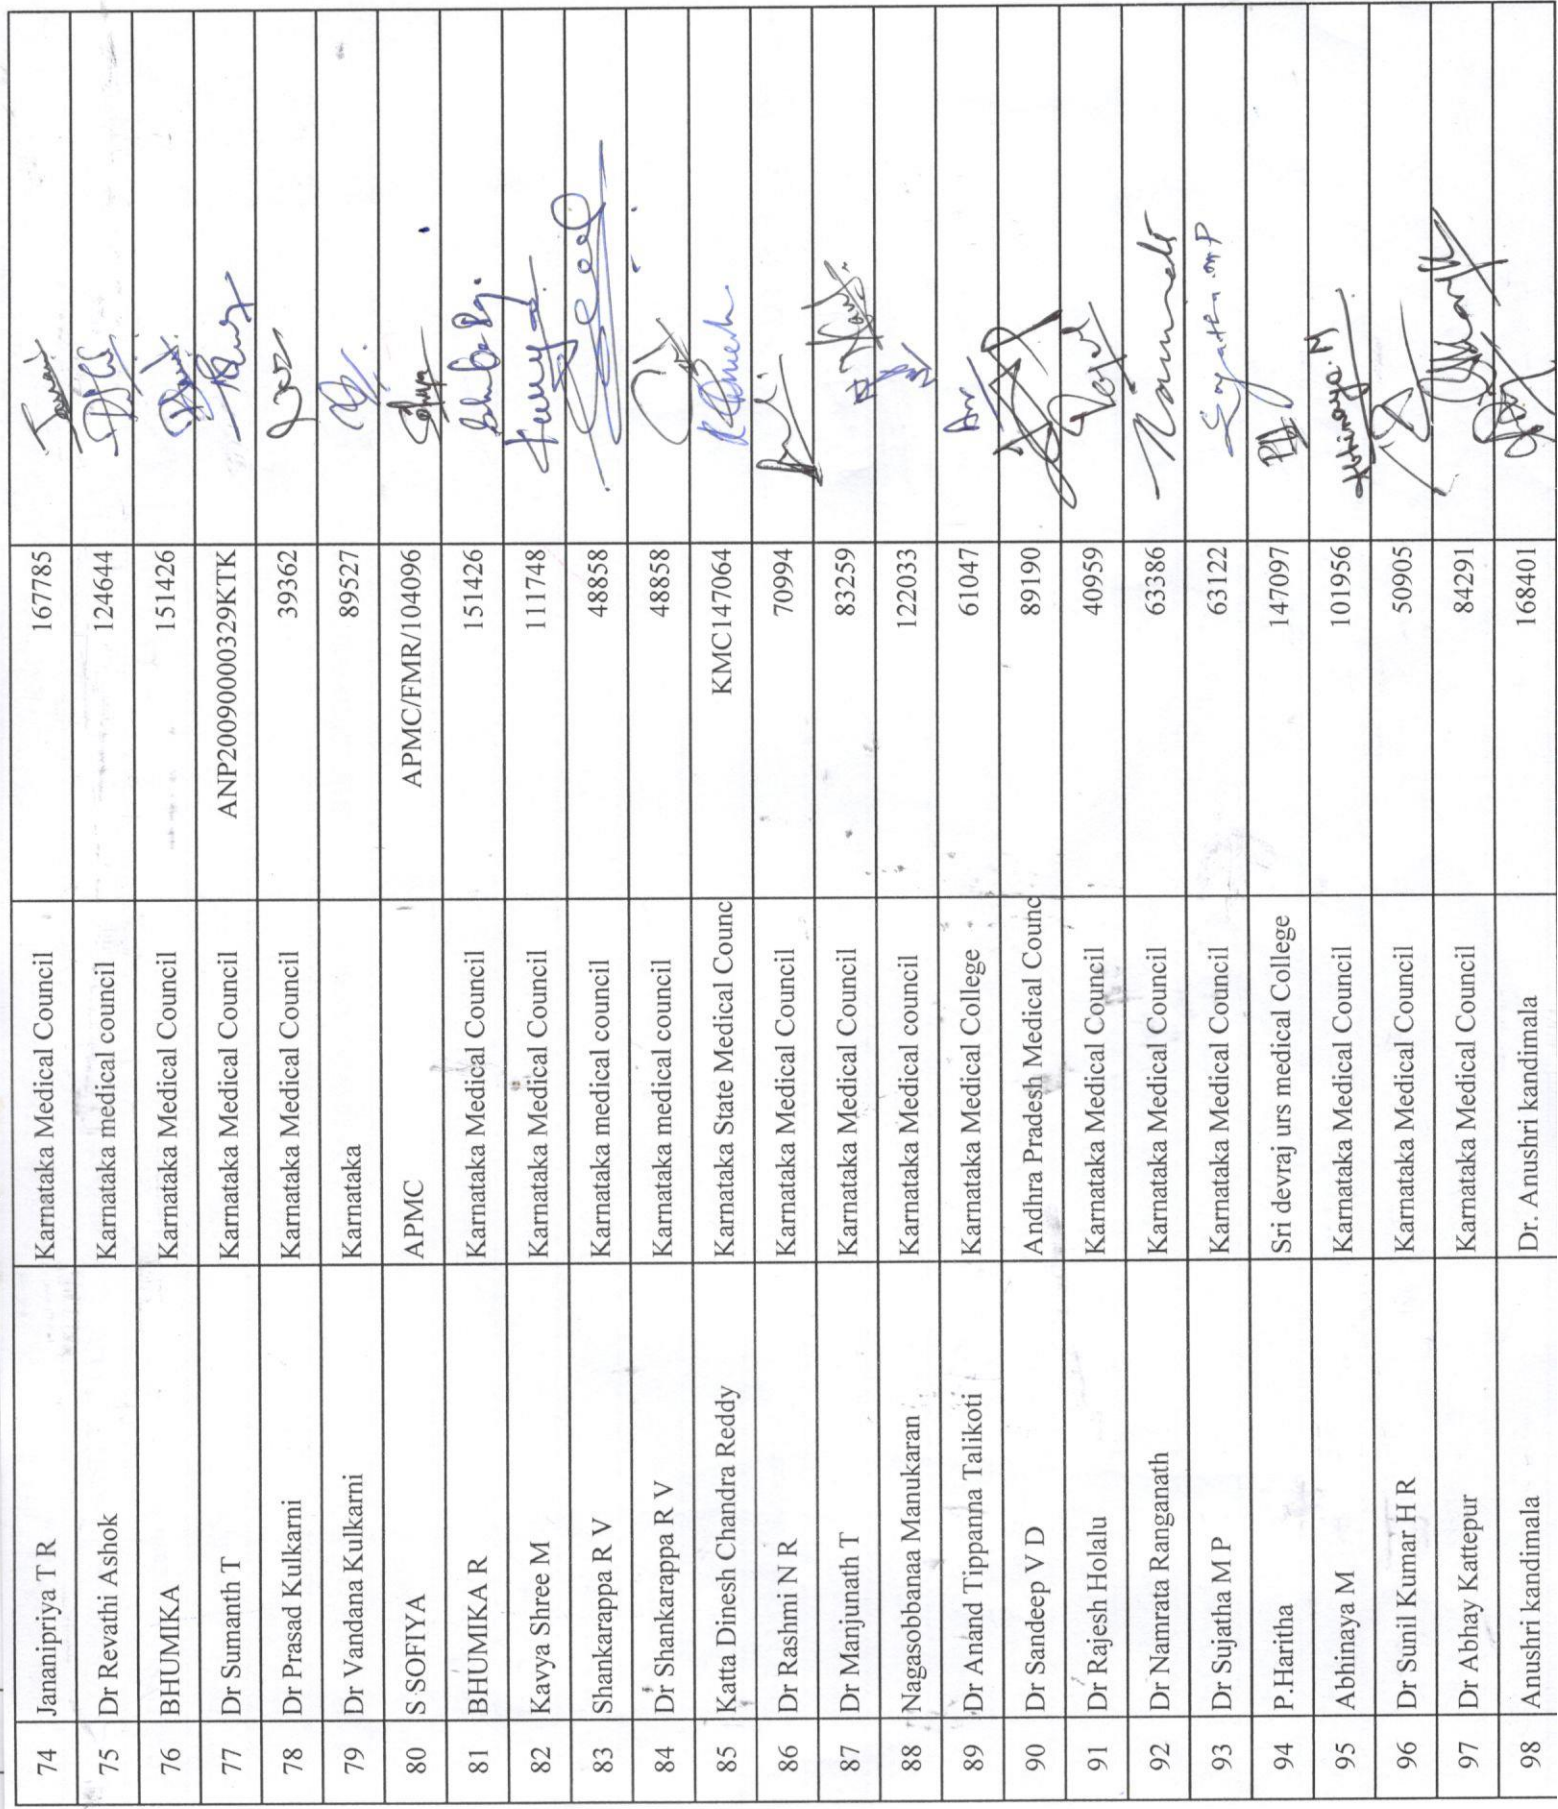 74 Jananipriya T R Karnataka Medical Council 167785
75 Dr Revathi Ashok Karnataka medical council 124644
76 BHUMIKA Karnataka Medical Council 151426
77 Dr Sumanth T Karnataka Medical Council ANP20090000329KTK
78 Dr Prasad Kulkarni Karnataka Medical Council 39362
79 Dr Vandana Kulkarni Karnataka 89527
80 S SOFIYA APMC APMC/FMR/104096
81 BHUMIKA R Karnataka Medical Council 151426
82 Kavya Shree M Karnataka Medical Council 111748
83 Shankarappa R V Karnataka medical council 48858
84 Dr Shankarappa R V Karnataka medical council 48858
85 Katta Dinesh Chandra Reddy Karnataka State Medical Counc KMC147064
86 Dr Rashmi N R Karnataka Medical Council 70994
87 Dr Manjunath T Karnataka Medical Council 83259
88 Nagasobbanaa Manukaran Karnataka Medical council 122033
89 Dr Anand Tippanna Talikoti Karnataka Medical College 61047
90 Dr Sandeep V D Andhra Pradesh Medical Counc 89190
91 Dr Rajesh Holalu Karnataka Medical Council 40959
92 Dr Namrata Ranganath Karnataka Medical Council 63386
93 Dr Sujatha M P Karnataka Medical Council 63122
94 P.Haritha Sri devraj urs medical College 147097
95 Abhinaya M Karnataka Medical Council 101956 Abhinaya.M
96 Dr Sunil Kumar H R Karnataka Medical Council 50905
97 Dr Abhay Kattepur Karnataka Medical Council 84291
98 Anushri kandimala Dr. Anushri kandimala 168401